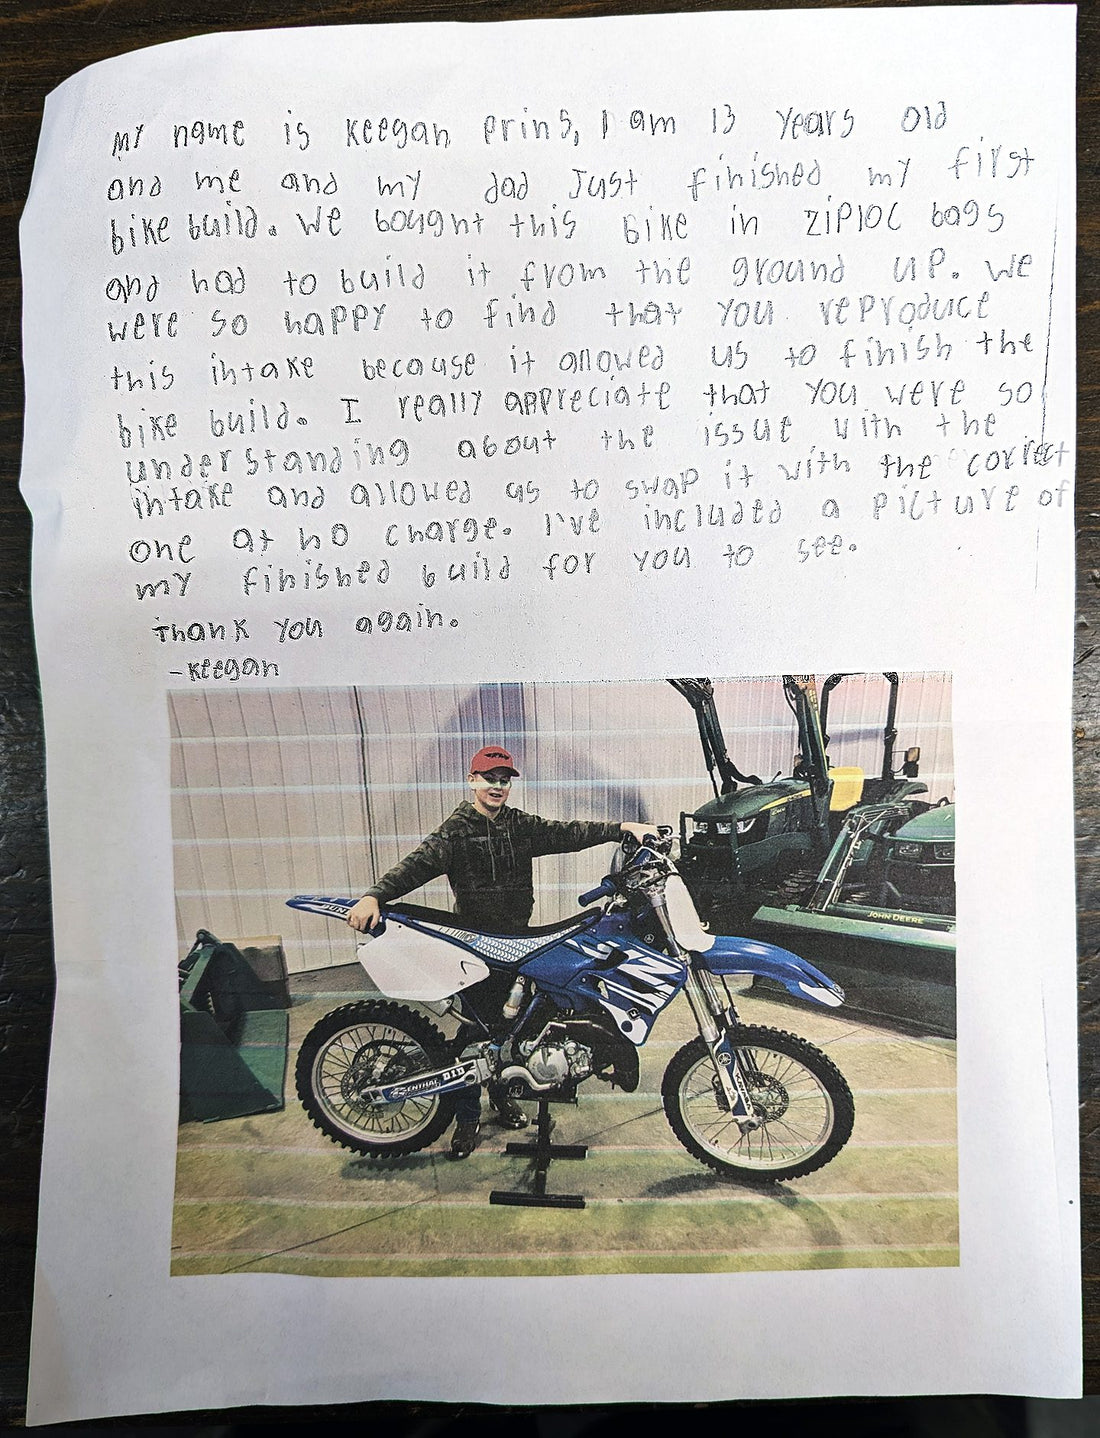 My name is Keegan Prins, I am 13 years old
and me and my dad Just finished my first
bike build. We bought this Bike in ziploc bags
and had to build it from the ground up. We
were so happy to find that you reproduce
this intake because it allowed us to finish the
bike build. I really appreciate that you were so
understanding about the issue with the
intake and allowed us to swap it with the correct
one at no charge. I've included a picture of
my finished build for you to see.
Thank you again.
-Keegan
JOHN DEERE
RENTHAL D.I.D